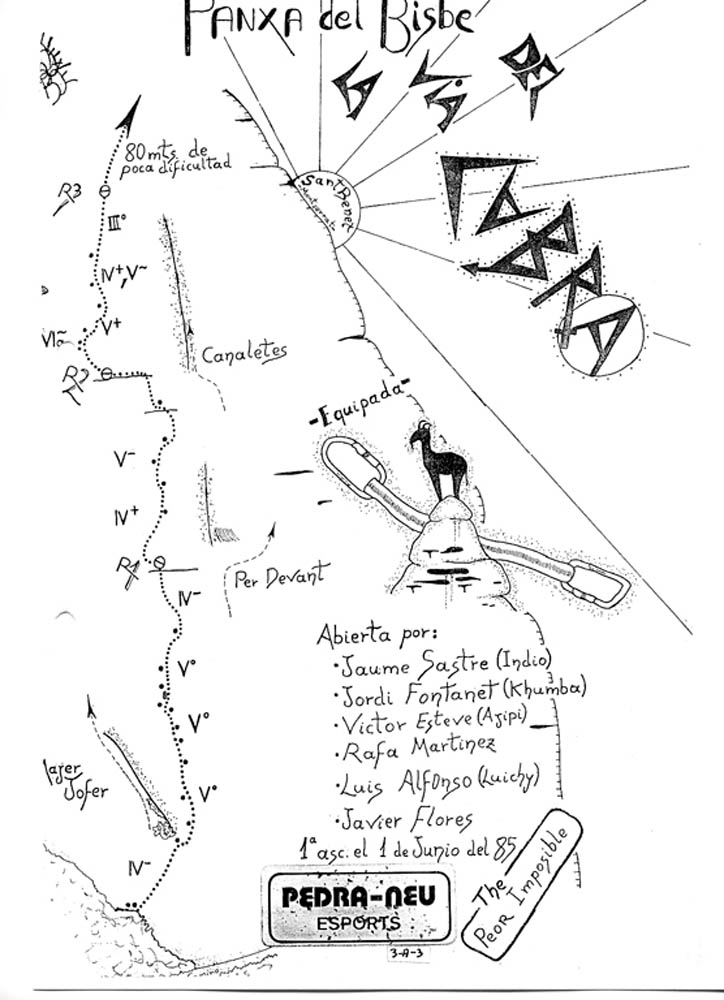 PANXA del Bisbe
LA VIA DEL
LABRA
80 mts. de
poca dificultad
Sant Benet
Montserrat
R3
III°
IV+, V-
V+
VI-
R2
Canaletes
-Equipada-
V-
IV+
R1
Per Devant
IV-
V°
V°
V°
Jofer
IV-
Abierta por:
·Jaume Sastre (Indio)
·Jordi Fontanet (Khumba)
·Victor Esteve (Ajipi)
·Rafa Martinez
·Luis Alfonso (Luichy)
·Javier Flores
1ª asc. el 1 de Junio del 85
The
Peor Imposible
PEDRA-NEU
ESPORTS
3-A-3